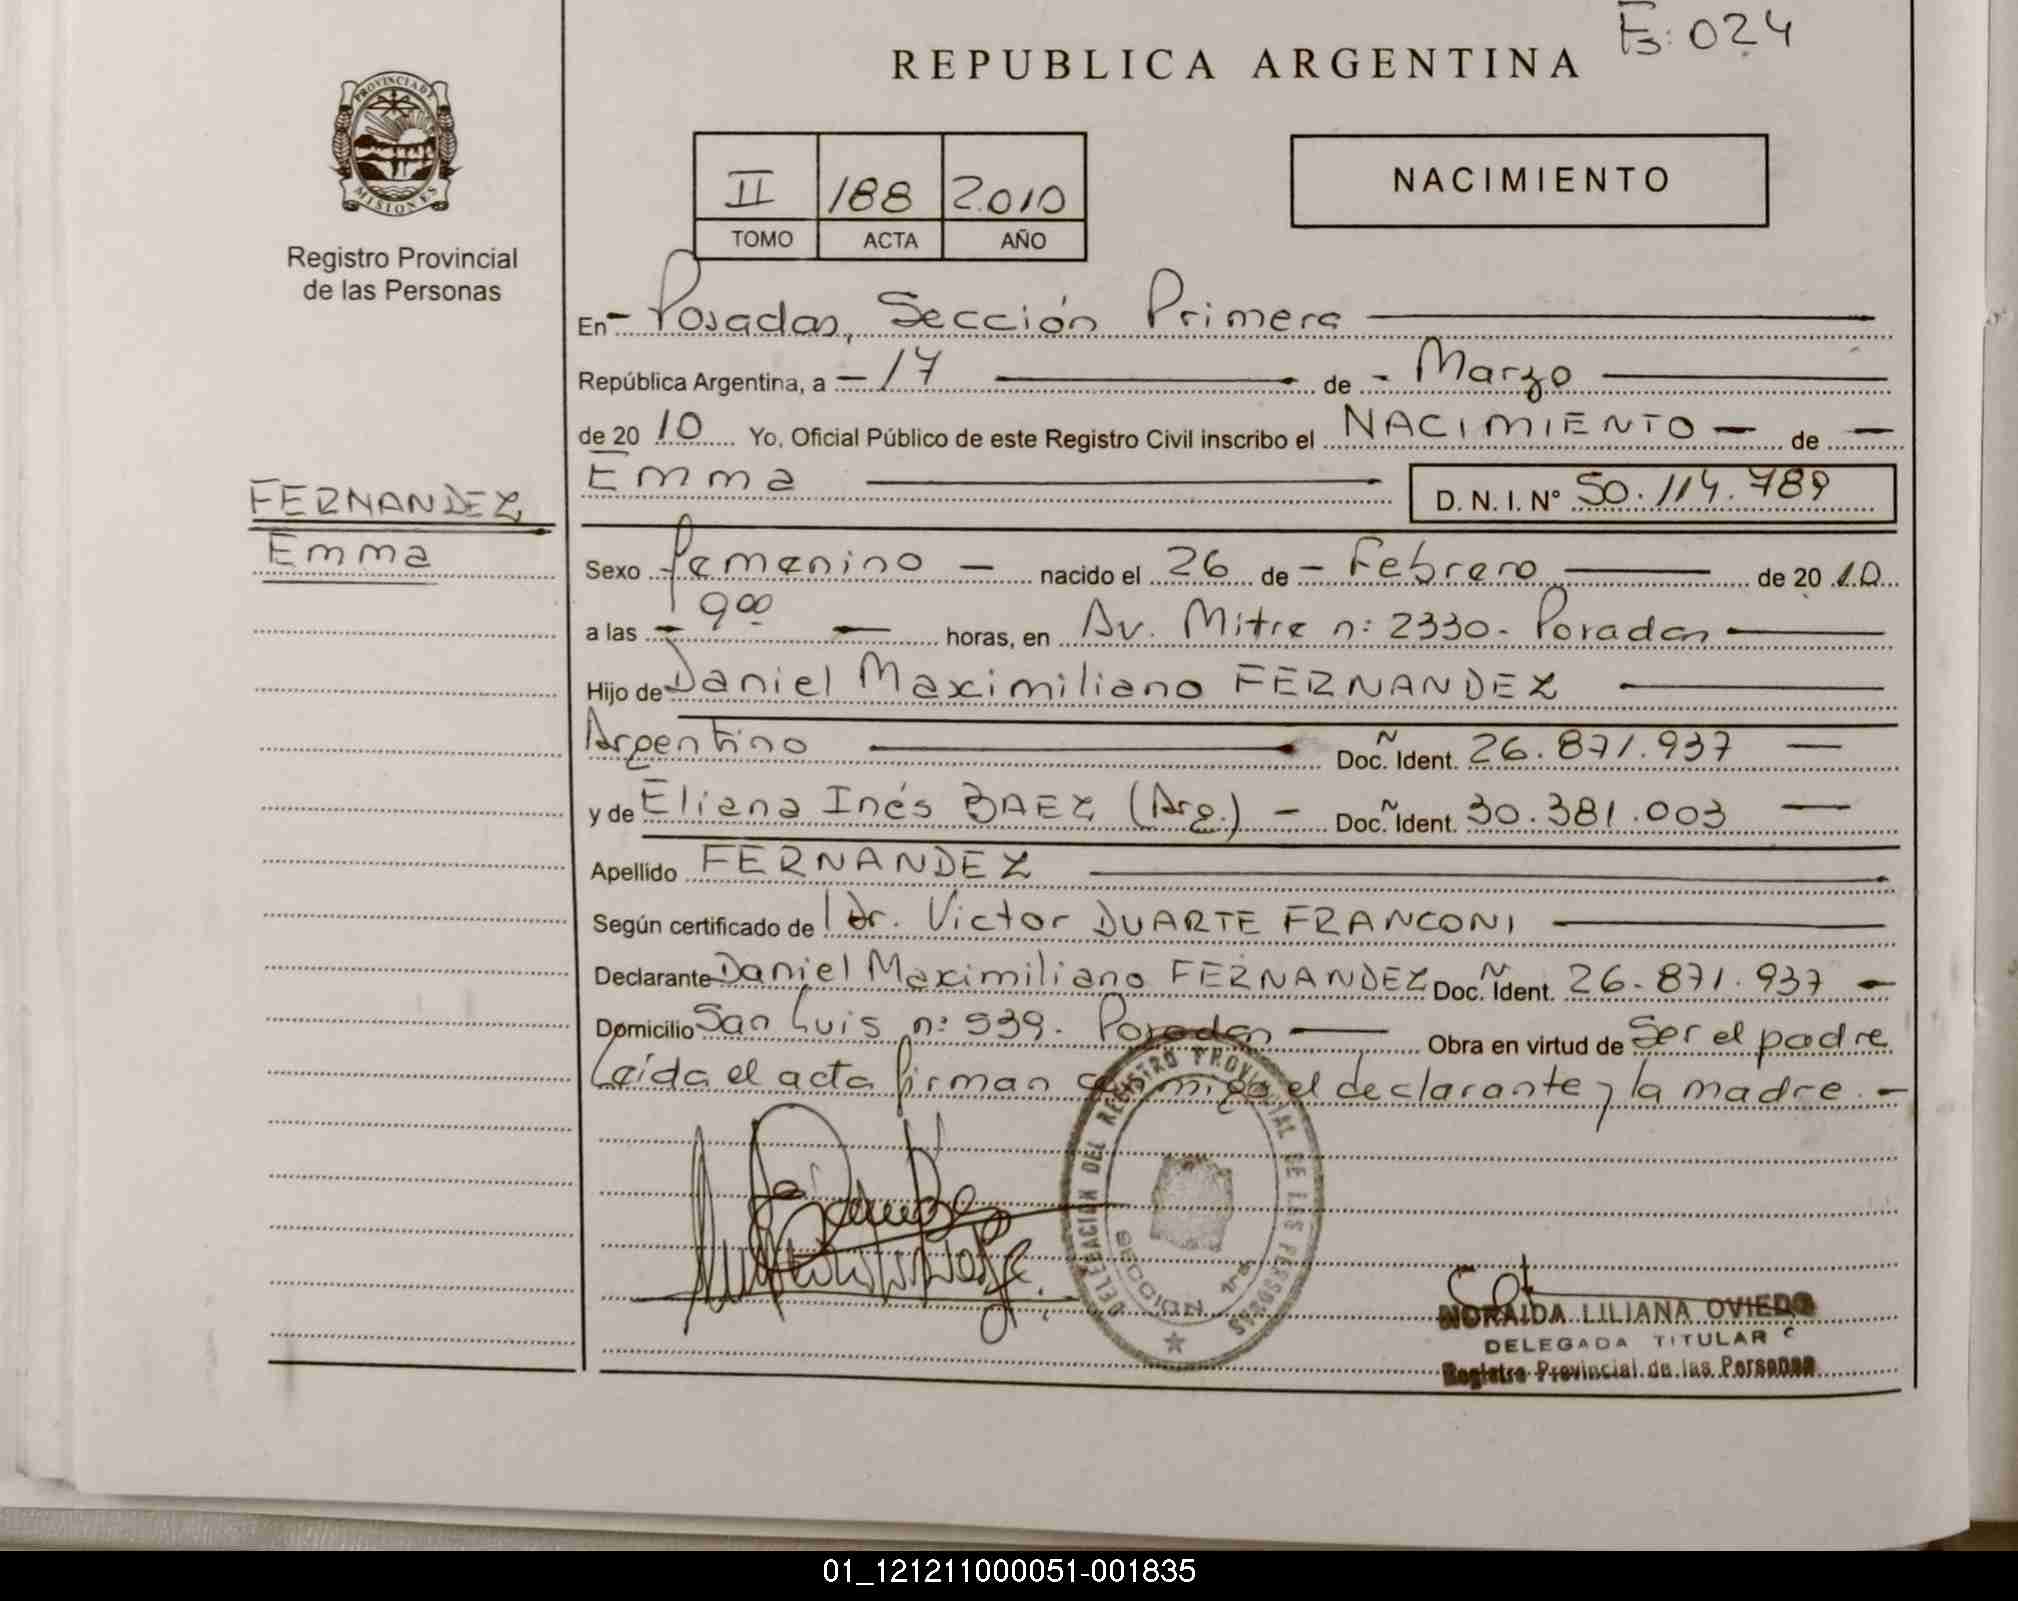 Fs: 024
REPUBLICA ARGENTINA
PROVINCIA DE
MISIONES
Registro Provincial
de las Personas
II 188 2.010
TOMO ACTA AÑO
NACIMIENTO
En - Posadas, Sección Primera
República Argentina, a - 17 de - Marzo
de 20 10 Yo, Oficial Público de este Registro Civil inscribo el NACIMIENTO - de -
Emma D. N. I. N° 50.114.789
FERNANDEZ,
Emma
Sexo femenino - nacido el 26 de - Febrero de 20 10
a las - 9 00 - horas, en Av. Mitre n: 2330 - Posadas
Hijo de Daniel Maximiliano FERNANDEZ
Argentino Doc. Ident. 26.871.937 -
y de Eliana Inés BAEZ (Arg.) - Doc. Ident. 30.381.003 -
Apellido FERNANDEZ
Según certificado de Dr. Victor DUARTE FRANCONI
Declarante Daniel Maximiliano FERNANDEZ Doc. Ident. 26.871.937 -
Domicilio San Luis n: 539 - Posadas - Obra en virtud de Ser el padre
Leída el acta firman conmigo el declarante y la madre. -
DELEGACION DEL REGISTRO PROVINCIAL DE LAS PERSONAS
SECCION 1ra
NORAIDA LILIANA OVIEDO
DELEGADA TITULAR C
Registro Provincial de las Personas
01_121211000051-001835